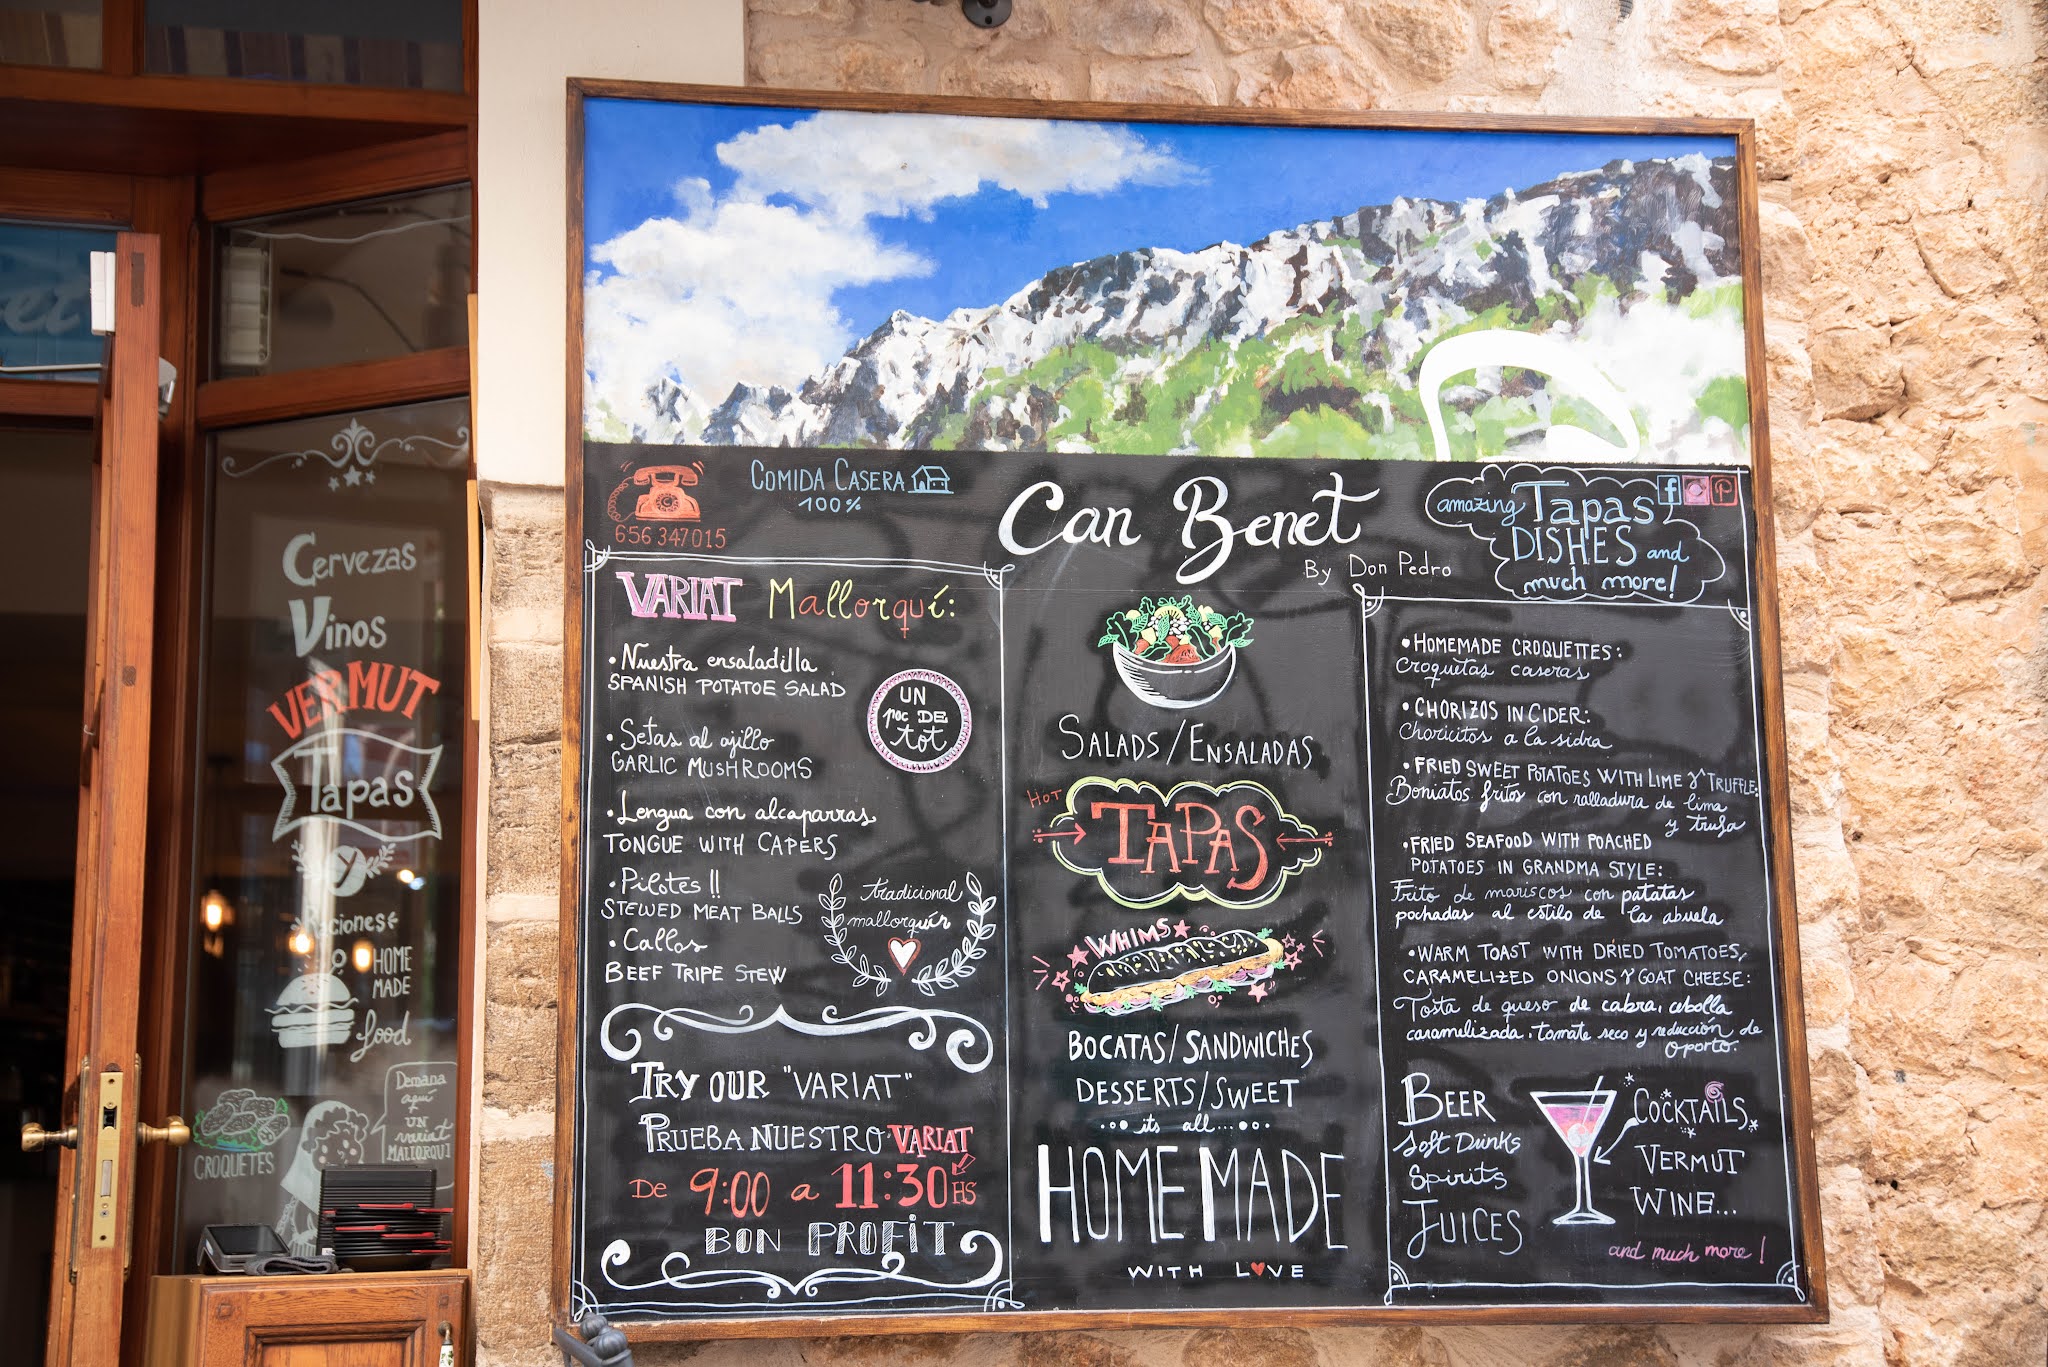 Cervezas
Vinos
VERMUT
Tapas
Raciones
HOME
MADE
food
Demana
aquí
UN
variat
MALLORQUÍ
CROQUETES
656 347 015
COMIDA CASERA
100%
Can Benet
By Don Pedro
amazing Tapas
DISHES and
much more!
VARIAT Mallorquí:
• Nuestra ensaladilla
SPANISH POTATOE SALAD
UN
poc DE
tot
• Setas al ajillo
GARLIC MUSHROOMS
• Lengua con alcaparras
TONGUE WITH CAPERS
• Pilotes !!
STEWED MEAT BALLS
• Callos
BEEF TRIPE STEW
tradicional
mallorquín
TRY OUR "VARIAT"
PRUEBA NUESTRO VARIAT
DE 9:00 a 11:30 HS
BON PROFIT
SALADS/ENSALADAS
HOT
TAPAS
WHIMS
BOCATAS/SANDWICHES
DESSERTS/SWEET
...its all...
HOMEMADE
WITH LOVE
• HOMEMADE CROQUETTES:
Croquetas caseras
• CHORIZOS IN CIDER:
Choricitos a la sidra
• FRIED SWEET POTATOES WITH LIME Y TRUFFLE:
Boniatos fritos con ralladura de lima
y trufa
• FRIED SEAFOOD WITH POACHED
POTATOES IN GRANDMA STYLE:
Frito de mariscos con patatas
pochadas al estilo de la abuela
• WARM TOAST WITH DRIED TOMATOES,
CARAMELIZED ONIONS Y GOAT CHEESE:
Tosta de queso de cabra, cebolla
caramelizada, tomate seco y reducción de
oporto.
BEER
Soft Drinks
Spirits
JUICES
COCKTAILS
VERMUT
WINE...
and much more!